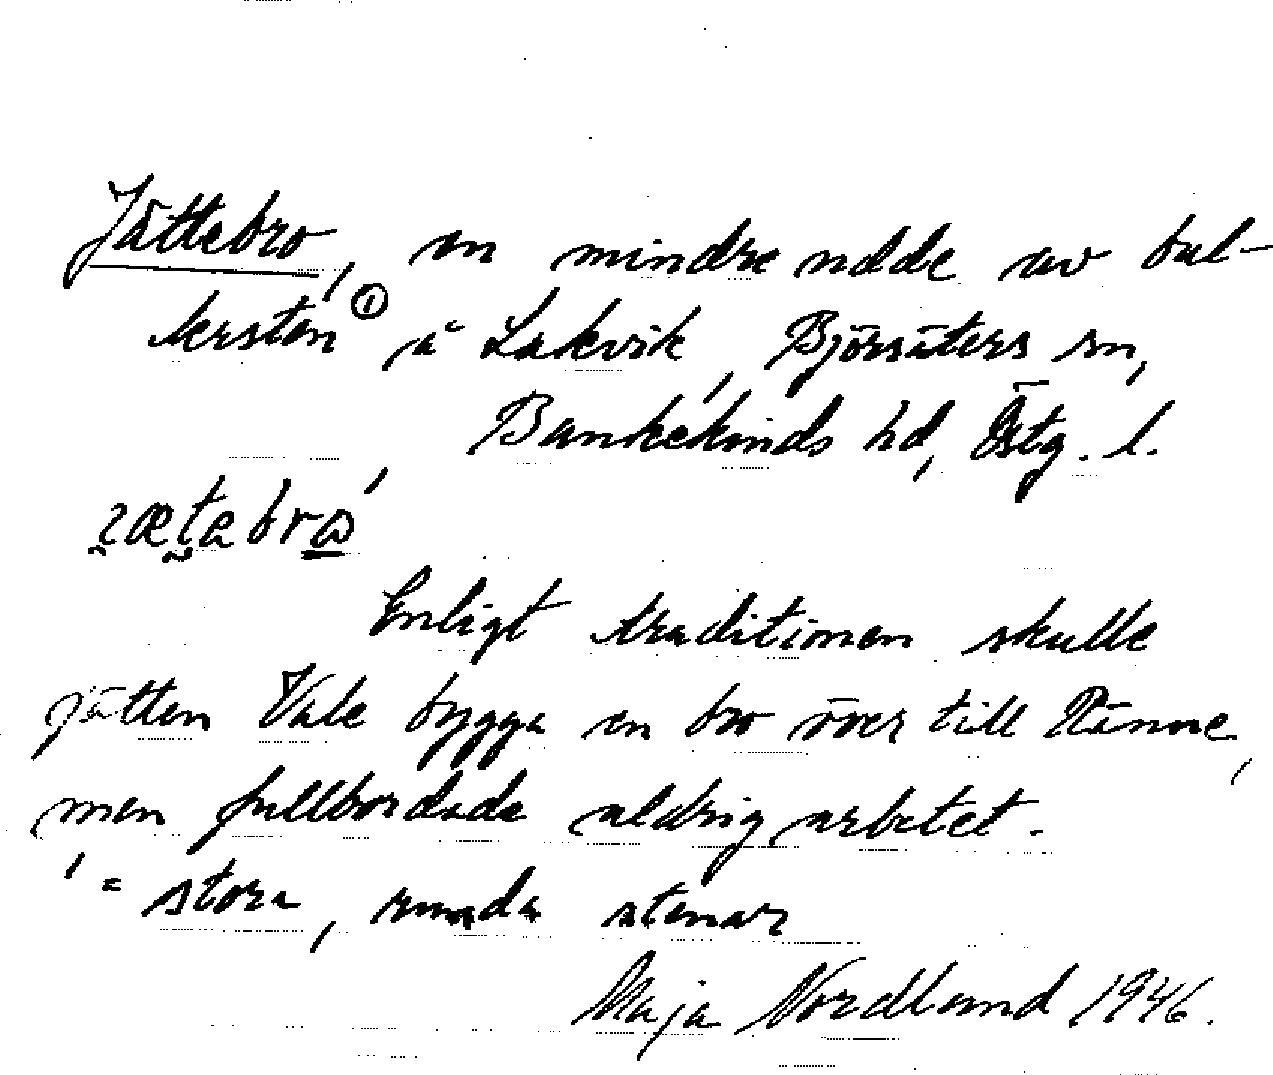 Jättebro, en mindre udde av bul-
lersten ① å Lakvik, Björsäters sn,
Bankekinds hd, Östg. l.
Enligt traditionen skulle
jätten Vale bygga en bro över till Ränne,
men fullbordade aldrig arbetet.
1 = stora, runda stenar
Maja Nordlund 1946.